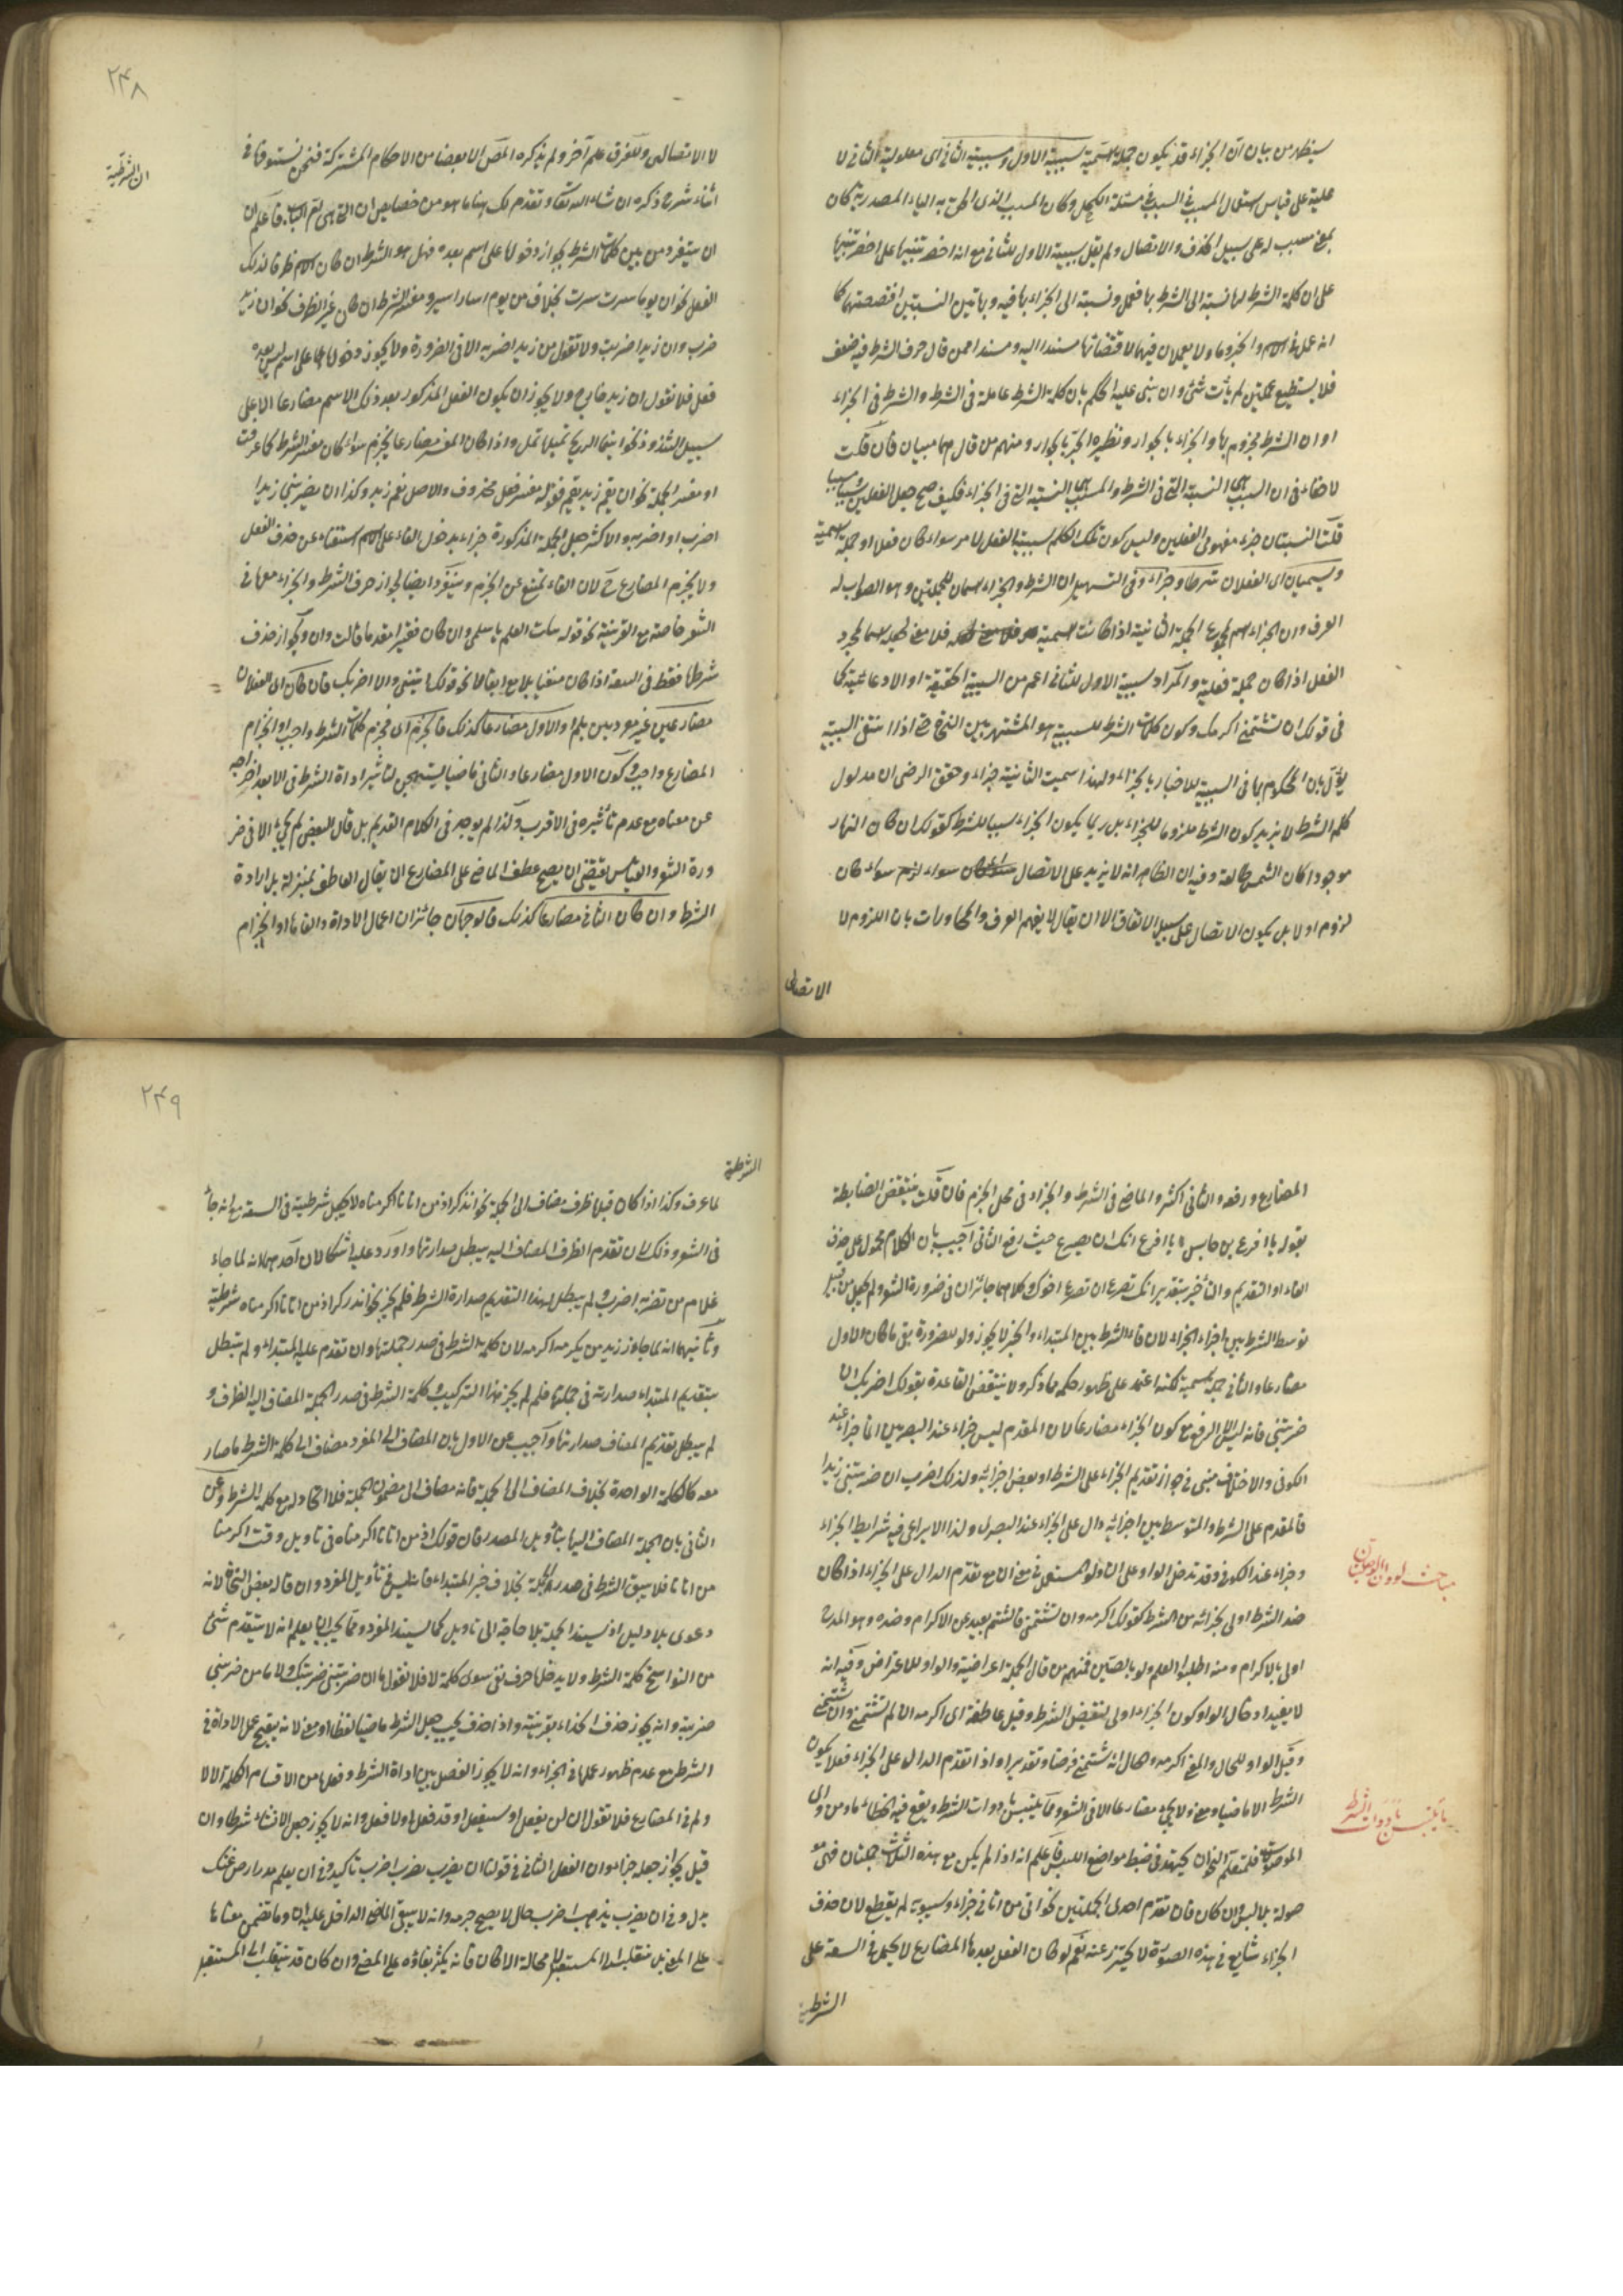 سيظهر من بيان ان الجزاء قد يكون جملة اسمية سببية الاول ومسببية الثاني اى معلولية الثاني لا
علية على قياس استعمال المسبب في السبب في مسئلة الكحل وكان المسبب الذى الحق به الياء المصدرية كان
بمعنى مسبب له على سبيل الحذف والاتصال ولم يقل سببية الاول للثاني مع انه اخصر تنبيها على
على ان كلمة الشرط لها نسبة الى الشرط بها فعل ونسبة الى الجزاء بها فيه وبهاتين النسبتين اقتضتهما كما
انه عمل في الاسم والخبر وما ولا يعملان فيهما لاقتضائهما مسندا اليه ومسندا فمن قال حرف الشرط فيه ضعف
فلا يستطيع عملين لم يأت شئ وان بنى عليه الحكم بان كلمة الشرط عاملة في الشرط والشرط في الجزاء
او ان الشرط مجزوم بها والجزاء بالجوار ونظيره الجر بالجوار ومنهم من قال هما مبنيان فان قلت
لا خفاء في ان السبب هى النسبة التى في الشرط والمسبب هى النسبة التى في الجزاء فكيف صح جعل الفعلين سببا ومسببا
قلت النسبتان جزء مفهومى الفعلين وليس كون تلك الكلم لسببية الفعل لامر سواء كان فعلا او جملة اسمية
ويسميان اى الفعلان شرطا وجزاء وفى التسهيل ان الشرط والجزاء اسمان للجملتين وهو الصواب له
العرف وان الجزاء اسم لمجموع الجملة الثانية اذا كانت اسمية فلا معنى لجعله اسما لمجرد
الفعل اذا كان جملة فعلية والمراد بسببية الاول للثاني اعم من السببية الحقيقة او الادعائية كما
في قولك ان تشتمني اكرمك وكون كلمات الشرط للسببية هو المشتهر بين النحاة حتى اذا انتفى السببية
يؤول بان المحكوم بها في السببية للاخبار بالجزاء ولهذا سميت الثانية جزاء وحقق الرضى ان مدلول
كلم الشرط لا يزيد كون الشرط ملزوما للجزاء بل ربما يكون الجزاء سببا للشرط كقولك ان كان النهار
موجودا كان الشمس طالعة وفيه ان الظاهر انه لا يزيد على الاتصال سواء لزم سواء كان
لزوم او لا بل يكون الاتصال على سبيل الاتفاق الا ان يقال لا يفهم العرف والمحاورات بان اللزوم لا
الاتصالى
٢٤٨
ان الشرطية
لا الاتصالى وللفرق علم آخر ولم يذكره المص الا بعضا من الاحكام المشتركة فنحن نستوفا في
اثناء شرح ذكره ان شاء الله تعالى ونقدم لك هنا ما هو من خصايص ان التى هى ام الباب فاعلم ان
ان يتفرد من بين كلمات الشرط بجواز دخولها على اسم بعده فعل هو الشرط ان كان الاسم ظرفا لذلك
الفعل نحو ان يوما سرت سرت بخلاف من يوم اسار اسير ومفسر الشرط ان كان غير الظرف نحو ان زيد
ضرب وان زيدا ضربت ولا تقول من زيدا اضربه الا في الضرورة ولا يجوز دخولها على اسم ليس بعده
فعل فلا تقول ان زيد خارج ولا يجوز ان يكون الفعل المذكور بعد ذلك الاسم مضارعا الا على
سبيل الشذوذ نحو اينما الريح تميلها تمل واذا كان المفسر مضارعا يجزم سواء كان مفسر الشرط كما عرفت
او مفسر الجملة نحو ان يقم زيد يقم فقوله مفسر فعل محذوف والاصل يقم زيد وكذا ان يضربني زيدا
اضرب او اضربه والاكثر جعل الجملة المذكورة جزاء بدخول الفاء على الاسم استغناء عن حذف الفعل
ولا يجزم المضارع ح لان الفاء تمنع عن الجزم ويتفرد ايضا بجواز حذف الشرط والجزاء معا في
الشعر خاصة مع القرينة نحو قوله بنات العم يا سلمى وان كان فقيرا معدما قالت وان ويجوز حذف
شرطها فقط في السعة اذا كان منفيا بلا مع ابقا لا نحو قولك ايتني والا اضربك فان كان اى الفعلان
مضارعين غير مودبين بلم او الاول مضارعا كذلك فالجزم اى فجزم كلمات الشرط واجب او انجزام
المضارع واجب وكون الاول مضارعا والثاني ماضيا يستهجن لتاثير اداة الشرط في الابعد اخراجه
عن معناه مع عدم تاثيره في الاقرب ولذا لم يوجد في الكلام القديم بل قال البعض لم يجئ الا في ضر
ورة الشعر والقياس يقتضى ان يصح عطف الماضى على المضارع الا ان يقال العاطف بمنزلة بلا اداة
الشرط وان كان الثاني مضارعا كذلك فالوجهان جائزان اعمال الاداة والغاءها او انجزام
المضارع ورفعه والثاني اكثر والماضى في الشرط والجزاء في محل الجزم فان قلت ينتقض الضابطة
بقوله يا اقرع بن حابس يا اقرع انك ان يصرع حيث رفع الثاني اجيب بان الكلام محمول على حذف
الفاء او التقديم والتأخير بتقدير انك تصرع ان تصرع اخوك وكلاهما جائزان في ضرورة الشعر ولم يجعل من قبيل
توسط الشرط بين اجزاء الجزاء لان فاء الشرط بين المبتداء والخبر لا يجوز ولو لضرورة بقى ما كان الاول
مضارعا والثاني جملة اسمية لكنه اعتمد على ظهور حكمه مما ذكر ولا ينتقض القاعدة بقولك اضربك ان
ضربتني فانه ليس الا الرفع مع كون الجزاء مضارعا لان المقدم ليس جزاء عند البصريين انما جزاء عند
الكوفى والاختلاف مبنى في جواز تقديم الجزاء على الشرط او بعض اجزائه ولذلك اضرب ان ضربتني زيدا
فالمقدم على الشرط والمتوسط بين اجزائه دال على الجزاء عند البصرى ولذا لا يراعى فيه شرايط الجزاء
وجزاء عند الكوفى وقد تدخل الواو على ان ولو المستعمل في معنى ان مع تقدم الدال على الجزاء اذا كان
ضد الشرط اولى بجزائه من الشرط كقولك اكرمه وان تشتمني فالشتم بعيد عن الاكرام وضده وهو المدح
اولى بالاكرام ومنه اطلبوا العلم ولو بالصين فمنهم من قال الجملة اعتراضية والواو للاعتراض وفيه انه
لا يفيد ادخال الواو كون الجزاء اولى لنقيض الشرط وقيل عاطفة اى اكرمه ان لم تشتمني وان تشتمني
وقيل الواو للحال والمعنى اكرمه والحال انه شتمني فرضا وتقديرا واذا تقدم الدال على الجزاء فلا يكون
الشرط الا ماضيا ومعنى ولا يجئ مضارعا الا في الشعر ومما يلتبس بادوات الشرط ويقع فيه الخطاء ما ومن واى
الموصولات فلمتعلم النحو ان يجتهد في ضبط مواضع اللبس فاعلم انه اذا لم يكن مع هذه الثلاث جملتان فهى مو
صولة بلا لبس وان كان فان تقدم احدى الجملتين نحو اتى من اتانى جزاء وسيبويه لم يقطع لان حذف
الجزاء شايع في هذه الصورة لا يحترز عنه نعم لو كان الفعل بعدها المضارع لا يحمل في السعة على
الشرطية
مباحث لو وان الوصليتان
ما يلتبس بادوات الشرط
٢٤٩
الشرطية
لما عرف وكذا اذا كان قبلها ظرف مضاف الى الجملة نحو انذكر اذ من اتانا اكرمناه لا يجعل شرطية في السعة مع انه جاء
في الشعر وذلك لان تقدم الظرف المضاف اليه يبطل صدارتها واورد عليه اشكالان احدهما انه لما جاء
غلام من تضربه اضرب ولم يبطل بهذا التقديم صدارة الشرط فلم لم يجز نحو انذكر اذ من اتانا اكرمناه شرطية
وثانيهما انه لما جاوز زيد من يكرمه اكرمه لان كلمة الشرط في صدر جملتها وان تقدم عليه المبتداء ولم تبطل
بتقديم المبتداء صدارته في جملتها فلم لم يجز هذا التركيب وكلمة الشرط في صدر الجملة المضاف اليه الظرف و
لم يبطل تقديم المضاف صدارتها واجيب عن الاول بان المضاف الى المفرد مضاف الى كلمة الشرط فصار
معه كالكلمة الواحدة بخلاف المضاف الى الجملة فانه مضاف الى مضمون الجملة فلا اتحاد له مع كلمة الشرط وعن
الثاني بان الجملة المضاف اليها بتأويل المصدر فان قولك اذ من اتانا اكرمناه في تاويل وقت اكرمنا
من اتانا فلا يبقى الشرط في صدر الجملة بخلاف خبر المبتداء فانه ليس في تأويل المفرد وان قال بعض النحاة لانه
دعوى بلا دليل اذ يسند الجملة بلا حاجة الى تاويل كما يسند المفرد ومما يجب ان يعلم انه لا يتقدم شئ
من النواسخ كلمة الشرط ولا يدخلها حرف نفى سوى كلمة لا فلا تقول ما ان ضربتني ضربتك ولا ما من ضربني
ضربته وانه يجوز حذف الجزاء بقرينة واذا حذف يجب جعل الشرط ماضيا لفظا او معنى لانه يقبح عمل الاداة في
الشرط مع عدم ظهور عملها في الجزاء وانه لا يجوز الفصل بين اداة الشرط وفعلها من الاقسام الكلمة الا لا
ولم في المضارع فلا تقول ان لن يفعل او سيفعل او قد فعل او لا فعل وانه لا يجوز جعل الانشاء شرطا وان
قيل يجواز جعله جزاء وان الفعل الثاني في قولنا ان يضرب يضرب اضرب تاكيد وفى ان يعلم
بدل وفى ان يضرب يذهب اضرب حال لا يصح جزمه وانه لا يبقى الماضى الداخل عليه ان وما تضمن معناها
على المعنى بل منقلب الى المستقبل لا محالة الا كان فانه يكثر بقاؤه على المضى وان كان قد ينقلب الى المستقبل